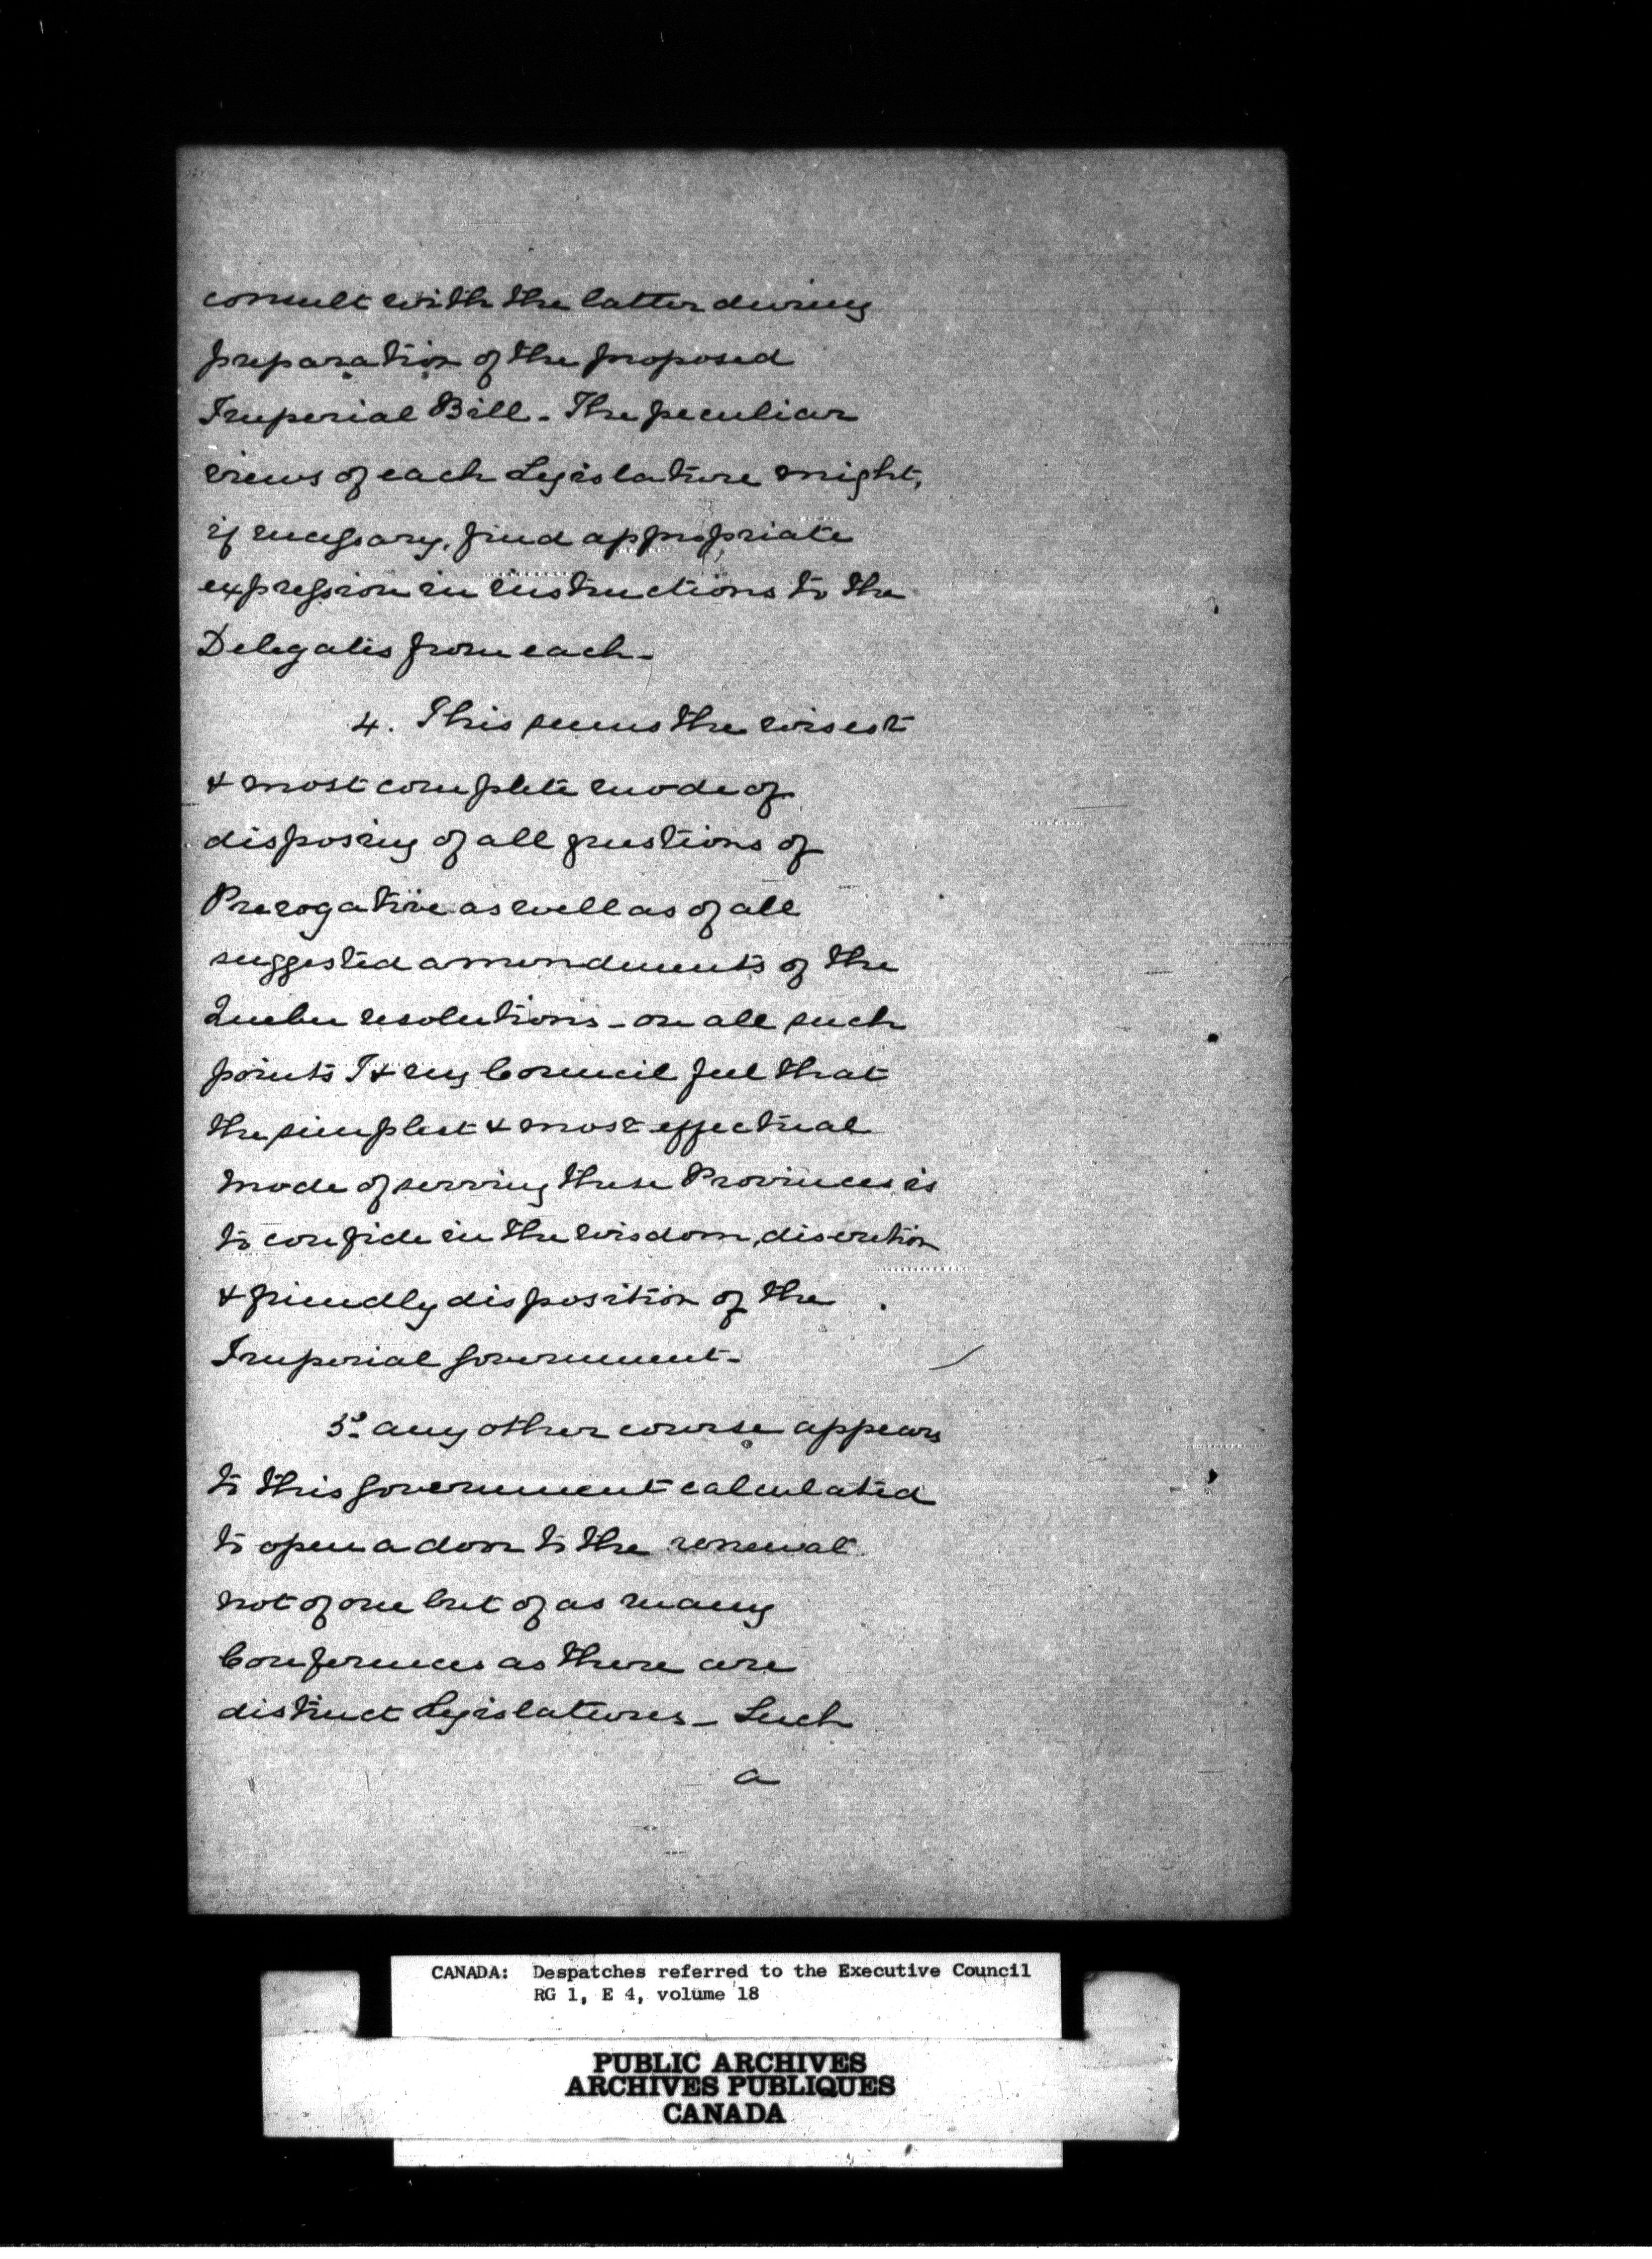 consult with the latter during
preparation of the proposed
Imperial Bill - The peculiar
views of each Legislature might,
if necessary, find appropriate
expression in instructions to the
Delegates from each -
4. This seems the wisest
& most complete mode of
disposing of all questions of
Prerogative as well as of all
suggested amendments of the
Quebec resolutions - on all such
points I & my Council feel that
the simplest & most effectual
mode of serving these Provinces is
to confide in the wisdom, discretion
& friendly disposition of the
Imperial Government -
5. Any other course appears
to this Government calculated
to open a door to the renewal
not of one but of as many
Conferences as there are
distinct Legislatures - Such
a
CANADA: Despatches referred to the Executive Council
RG 1, E 4, volume 18
PUBLIC ARCHIVES
ARCHIVES PUBLIQUES
CANADA